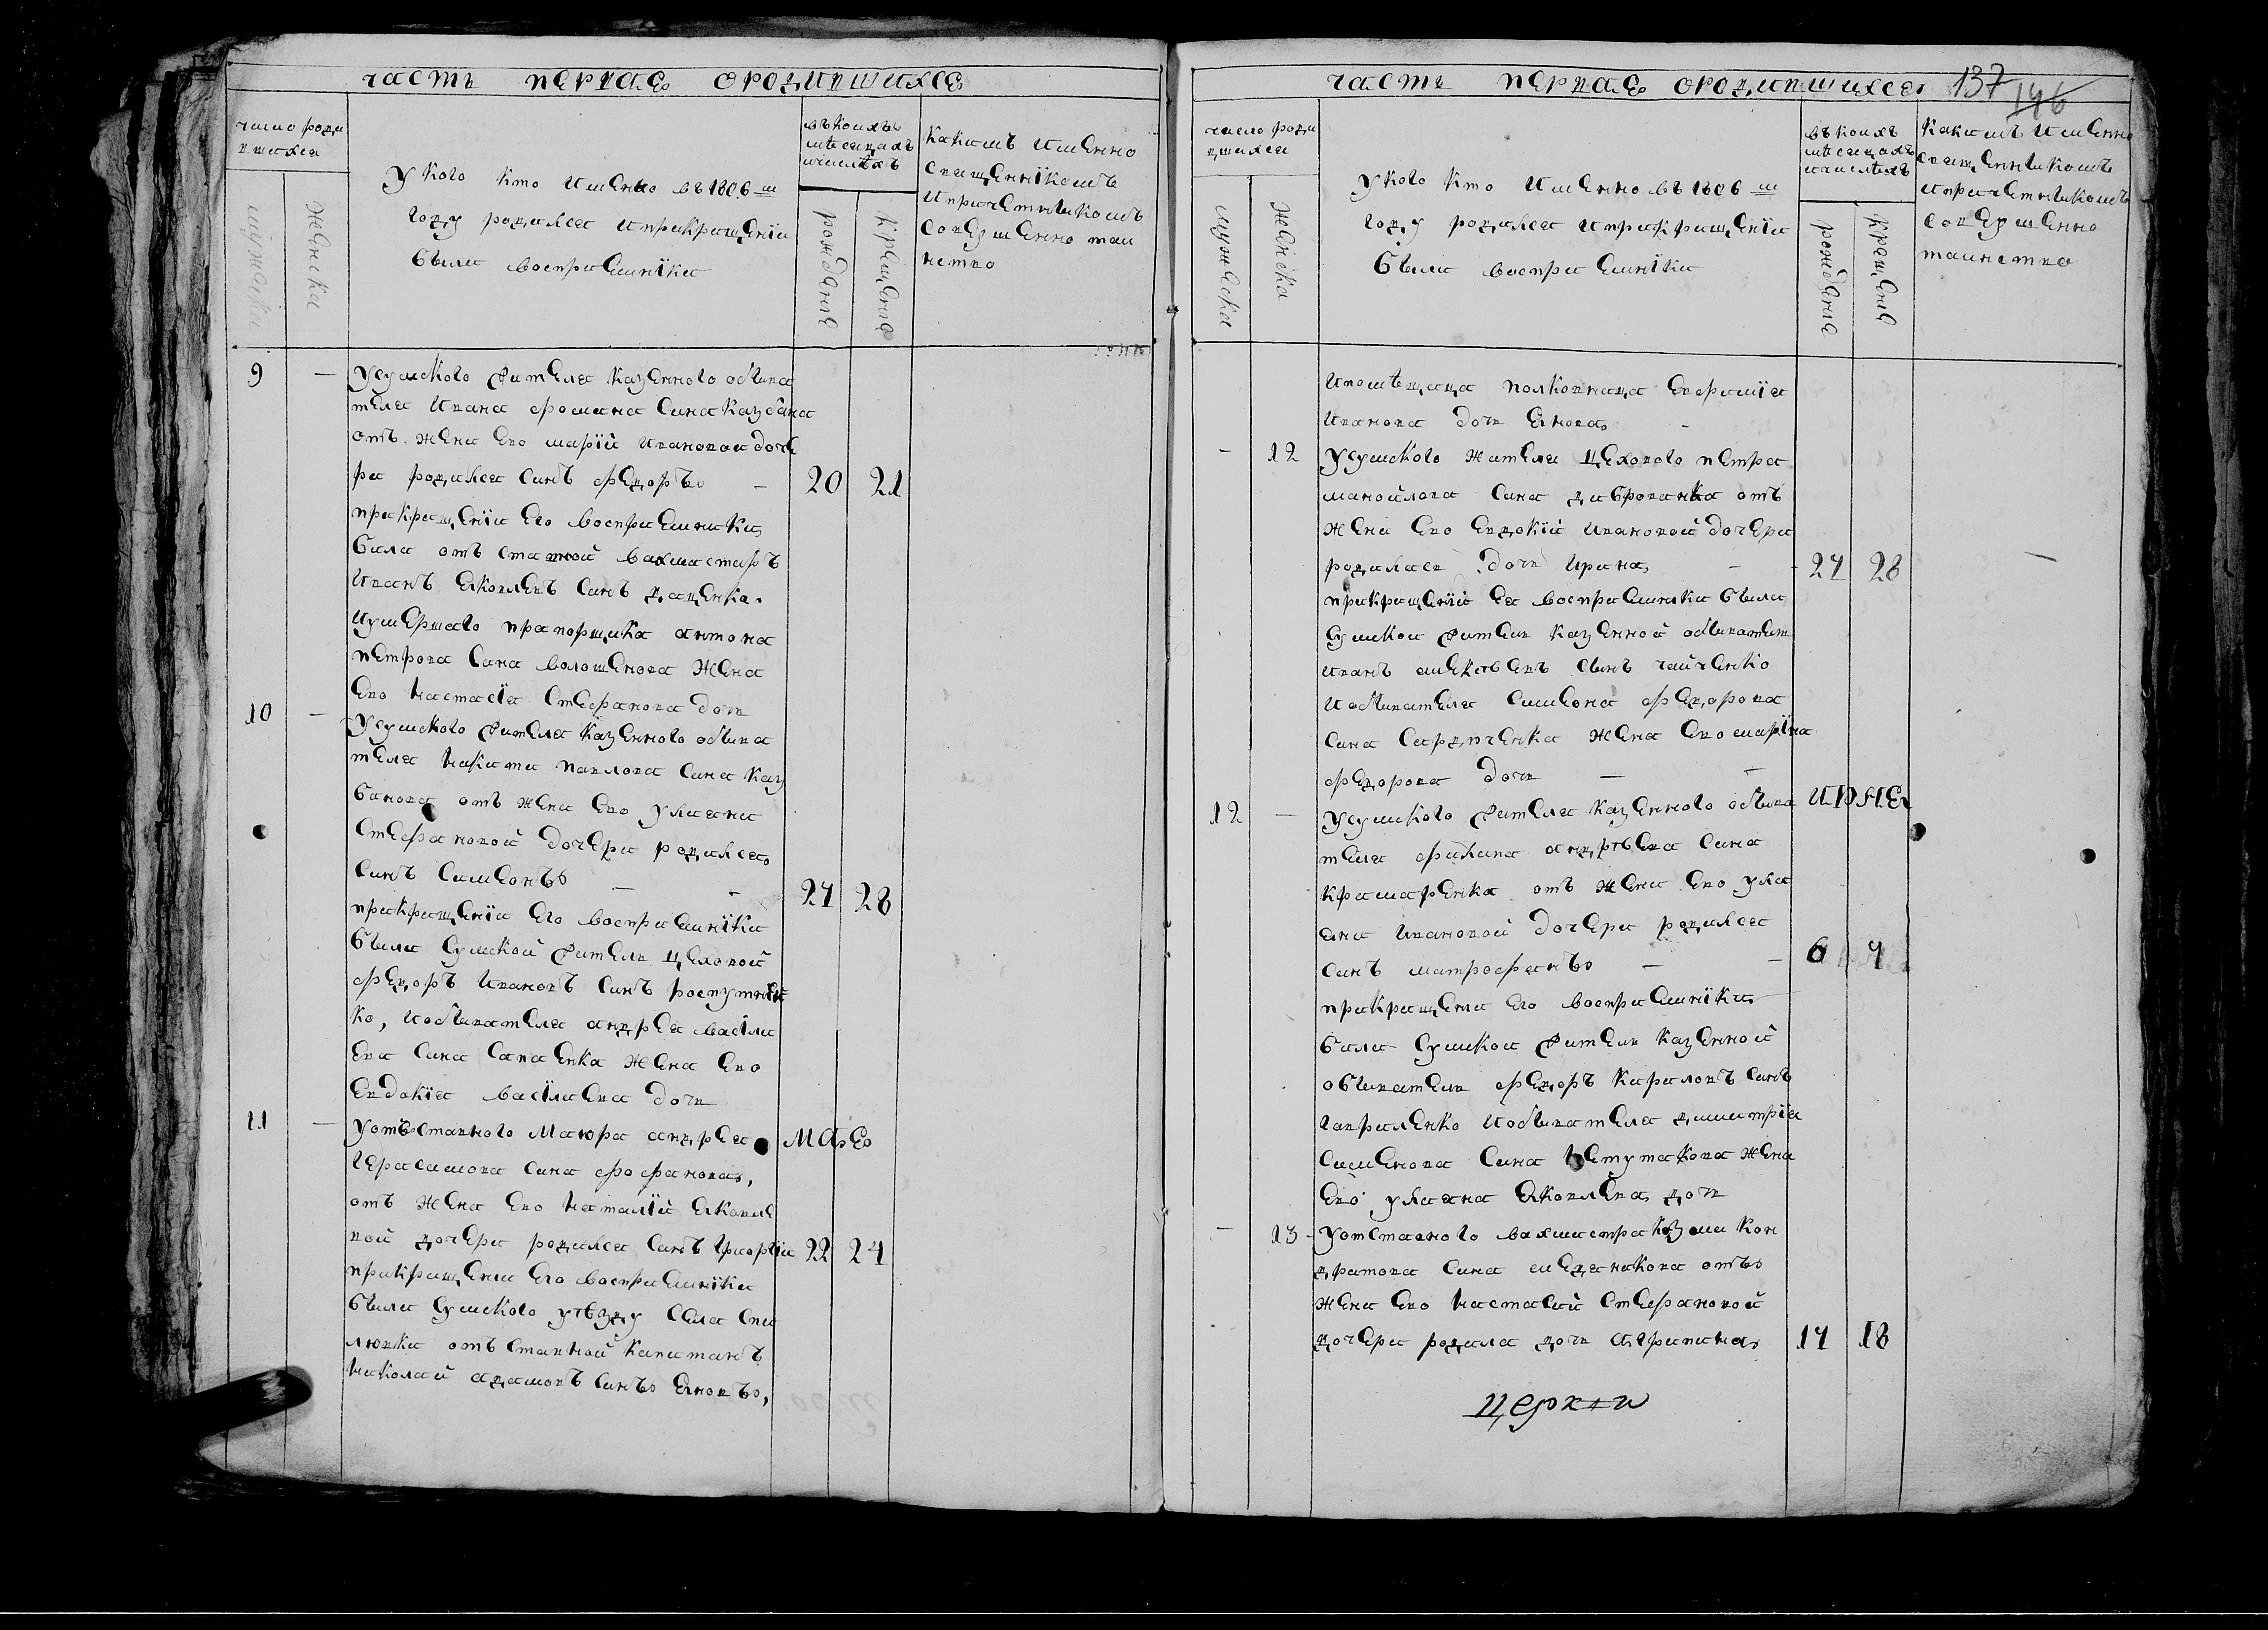 часть первая ородившихся
число роди
вшихся
мужеска
женска
У кого кто имянно въ 1806 м
году родился и прикрещенїи
были восприемнїки
въ коихъ
мѣсецахъ
ичислѣхъ
рождение
крещение
Какимъ имянно
священнїкомъ
ипричетникомъ
совершенно таи
нство
9 — Усумского жителя казенного обыва
теля Ивана фомина сина Казбана
отъ жени ево марїи ивановои доче
ри родился синъ федоръ — 20 21
прикрещенїи его восприемники
били отъставной вахмистиръ
Иванъ яковлевъ синъ даценка
иумершаго прапорщика антона
петрова сина волошенова жена
ево настасїя стефанова дочь
10 — Усумского жителя казенного обыва
теля никити павлова сина Каз
банова отъ жени ево улияни
стефановой дочери родился
синъ симеонъ — — 27 28
прикрещенїи его восприемнїки
были сумской житель цеховой
федоръ ивановъ синъ
ко, иобывателя андрея васїли
ева сина сапаенка жена ево
евдокїя васїлиева дочь
11 — Уотъставного маюра андрея маЯ
герасимова сина фофанова,
отъ жени ево наталїи яковле
вой дочери родился синъ григорїи 22 24
прикрещении его восприемнїки
были сумского уѣзду села
отъставной капитанъ
николай адамовъ синъ яновъ,
часть первая ородившихся 137
146
число роди
вшихся
мужеска
женска
У кого кто имянно въ 1806 м
году родился и прикрещенїи
были восприемнїки
въ коихъ
мѣсецахъ
ичислѣхъ
рождение
крещение
Какимъ имянно
священникомъ
ипричетникомъ
совершенно
таинство
ипомѣщица полковница евфимїя
иванова дочь янова —
— 12 Усумского жителя цехового петра
манойлова сина дибриванка отъ
жени ево евдокїи ивановой дочери
родилась дочь ирина — 27 28 —
прикрещенїи ея восприемники были
сумской житель казенной обыватель
иванъ алексѣевъ сынъ чайченко
иобывателя симеона федорова
сина сердиченка жена ево марїна
федорова дочь — —
12 — Усумского жителя казенного обыва июня
теля филипа андрѣева сина
крамаренка отъ жени ево ули
яни ивановой дочери родился
синъ митрофанъ — — 6 7
прикрещении его восприемнїки
били сумской житель казенной
обыватель федоръ кириловъ синъ
гавриленко иобывателя димитрїя
симеонова сина жена
ево улияна яковлева дочь
— 13 Уотставного вахмистра козми кон
дратова сина медяникова отъ
жени ево настасїй стефановой
дочери родила дочь агрипина 17 18
церкви